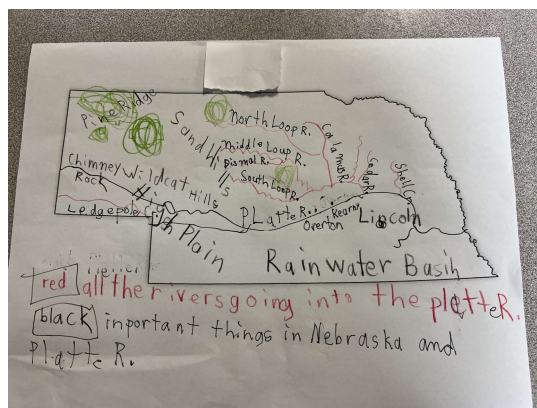 Pine Ridge
Sand Hills
North Loop R.
Calamus R.
Middle Loup R.
Dismal R.
Cedar R.
Shell Cr.
Chimney Rock
Wildcat Hills
South Loop R.
High Plain
Platte R.
Kearny
Overton
Lincoln
Rain water Basin
red all the rivers going into the pletteR.
black inportant things in Nebraska and
Platte R.